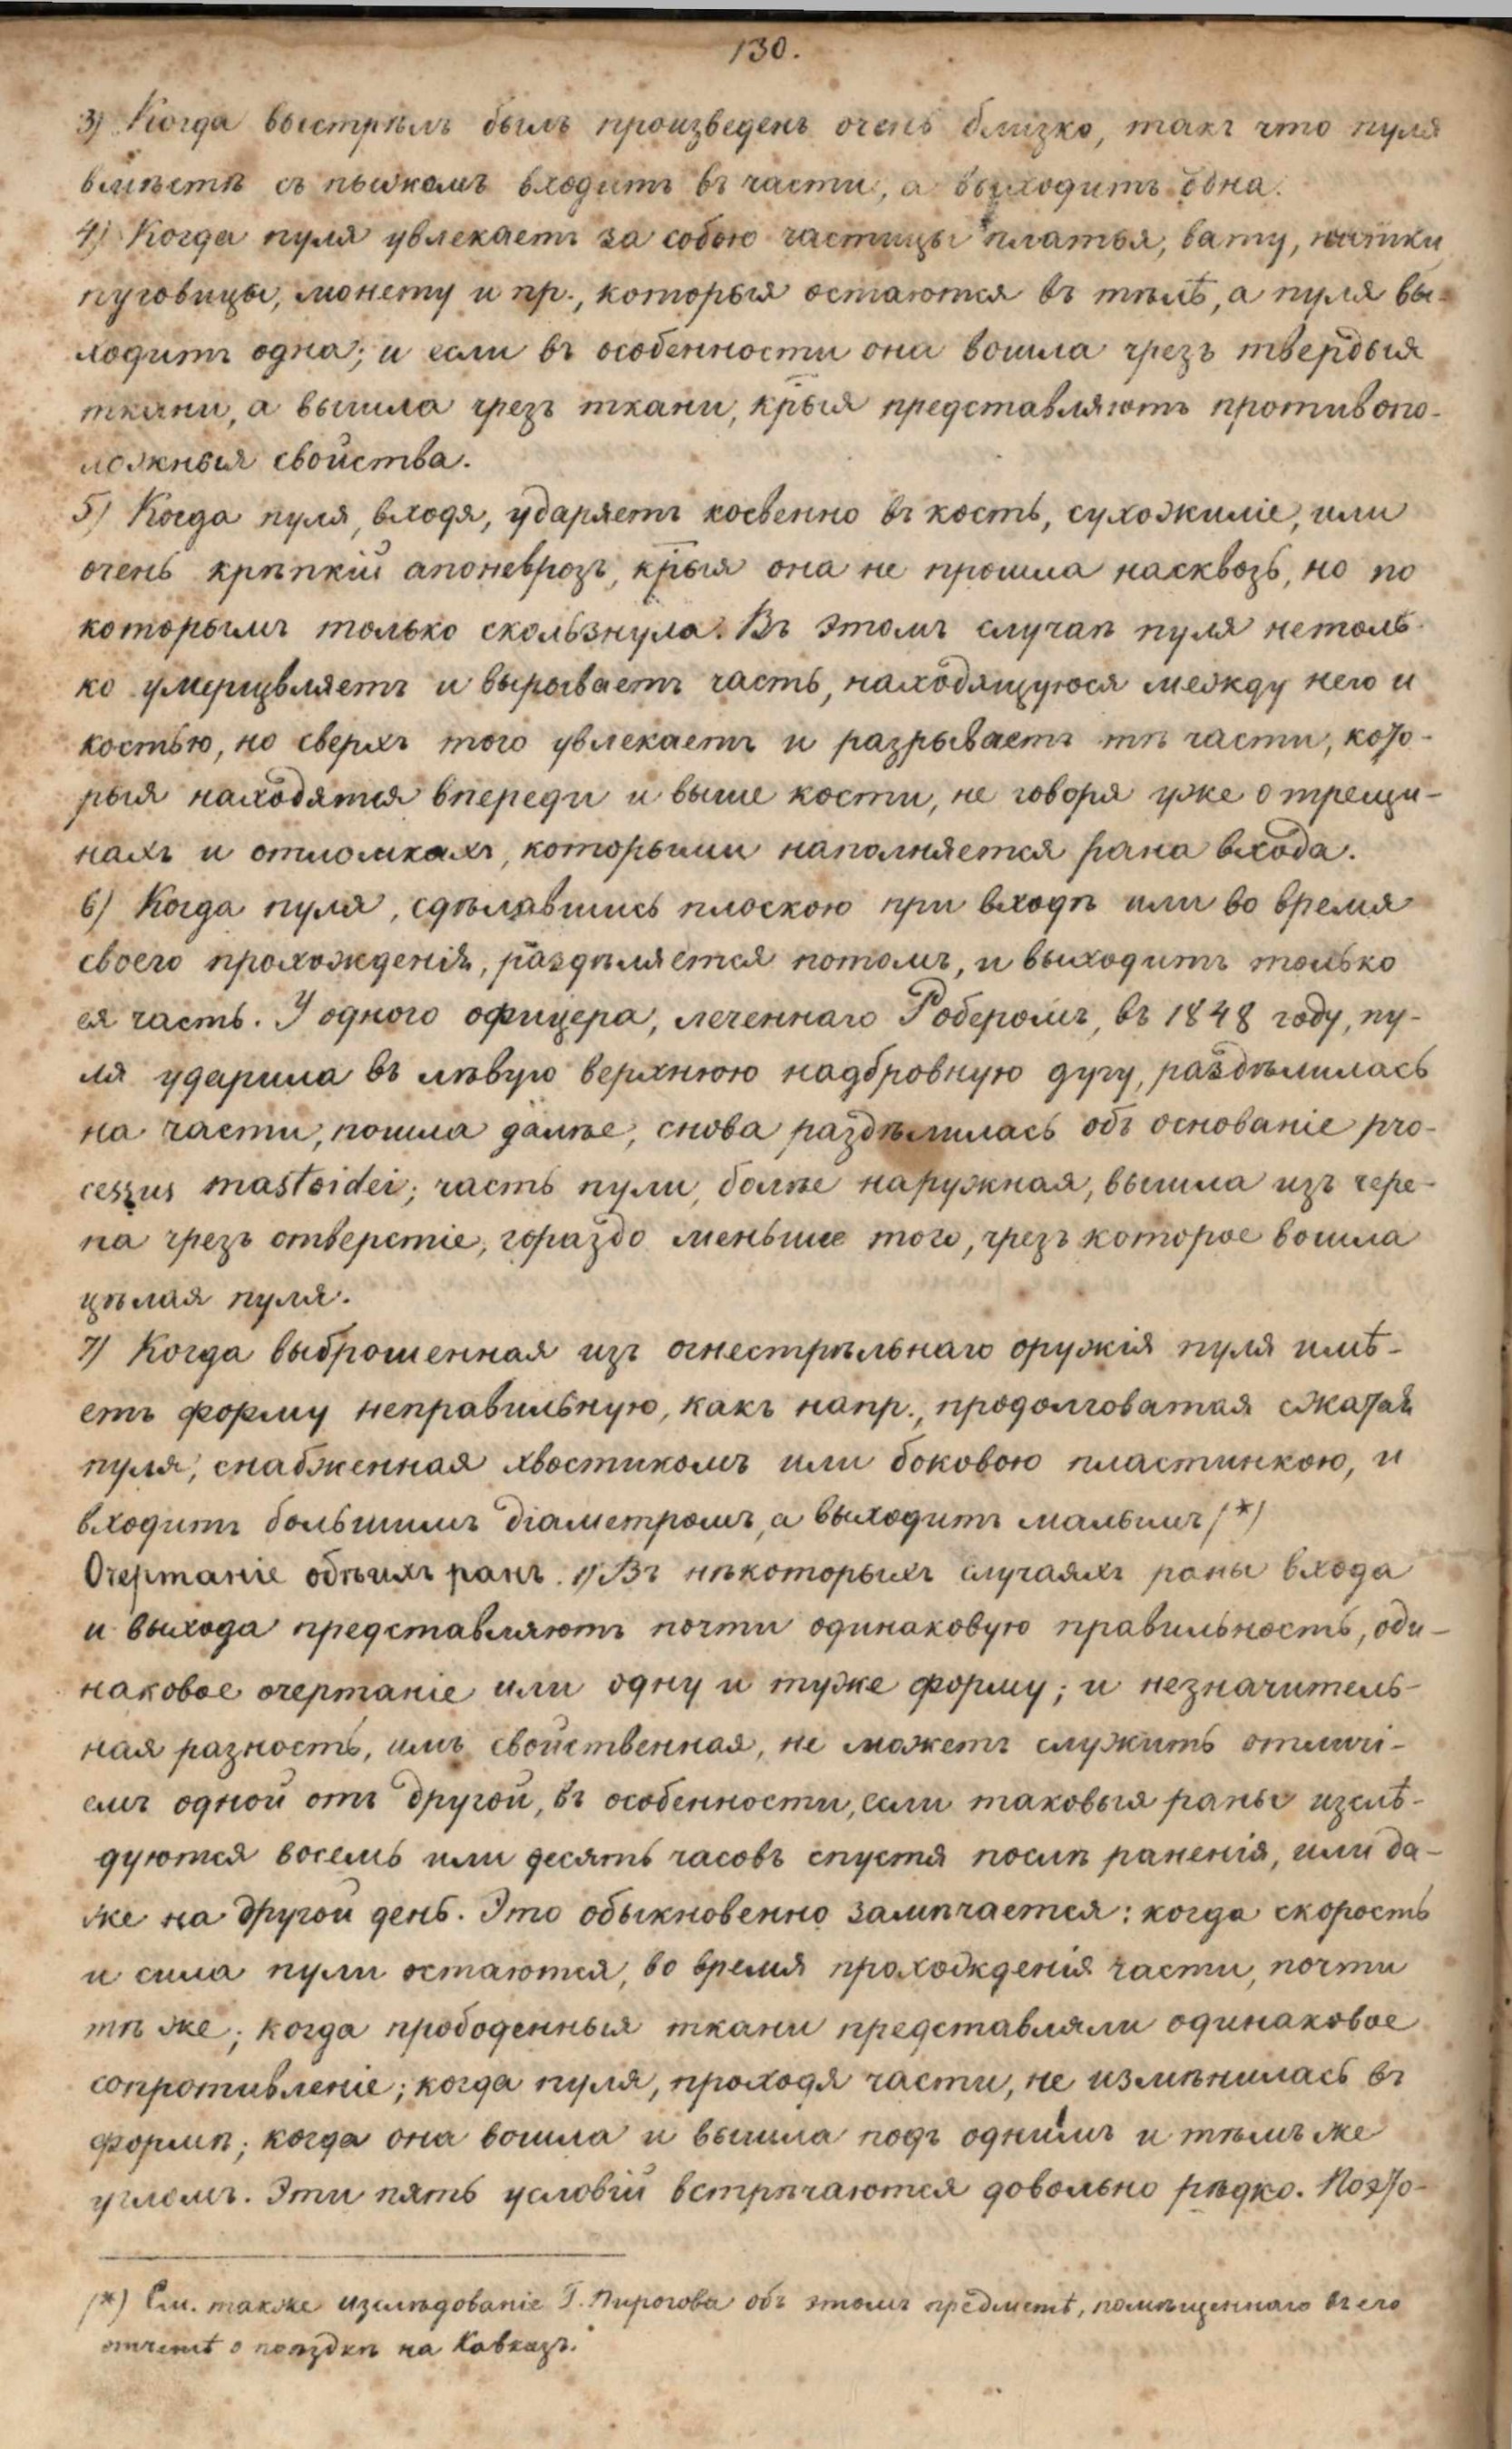 130.
3) Когда выстрѣлъ былъ произведенъ очень близко, такъ что пуля
вмѣстѣ съ пыжомъ входитъ въ части, а выходитъ одна.
4) Когда пуля увлекаетъ за собою частицы платья, вату, нитки,
пуговицы, монету и пр., которыя остаются въ тѣлѣ, а пуля вы-
ходитъ одна; и если въ особенности она вошла чрезъ твердыя
ткани, а вышла чрезъ ткани, крыя представляютъ противопо-
ложныя свойства.
5) Когда пуля, входя, ударяетъ косвенно въ кость, сухожиліе, или
очень крѣпкій апоневрозъ, крыя она не прошла насквозь, но по
которымъ только скользнула. Въ этомъ случаѣ пуля нетоль-
ко умерщвляетъ и вырываетъ часть, находящуюся между нею и
костью, но сверхъ того увлекаетъ и разрываетъ тѣ части, кото-
рыя находятся впереди и выше кости, не говоря уже о трещи-
нахъ и отломкахъ, которыми наполняется рана входа.
6) Когда пуля, сдѣлавшись плоскою при входѣ или во время
своего прохожденія, раздѣляется потомъ, и выходитъ только
ея часть. У одного офицера, леченнаго Роберомъ, въ 1848 году, пу-
ля ударила въ лѣвую верхнюю надбровную дугу, раздѣлилась
на части, пошла далѣе, снова раздѣлилась объ основаніе pro-
cessus mastoidei; часть пули, болѣе наружная, вышла изъ чере-
па чрезъ отверстіе, гораздо меньшее того, чрезъ которое вошла
цѣлая пуля.
7) Когда выброшенная изъ огнестрѣльнаго оружія пуля имѣ-
етъ форму неправильную, какъ напр., продолговатая сжатая
пуля, снабженная хвостикомъ или боковою пластинкою, и
входитъ большимъ діаметромъ, а выходитъ малымъ (*)
Очертаніе обѣихъ ранъ. 1) Въ нѣкоторыхъ случаяхъ раны входа
и выхода представляютъ почти одинаковую правильность, оди-
наковое очертаніе или одну и туже форму; и незначитель-
ная разность, имъ свойственная, не можетъ служить отличі-
емъ одной отъ другой, въ особенности, если таковыя раны изслѣ-
дуются восемь или десять часовъ спустя послѣ раненія, или да-
же на другой день. Это обыкновенно замѣчается: когда скорость
и сила пули остаются, во время прохожденія части, почти
тѣ же; когда прободенныя ткани представляли одинаковое
сопротивленіе; когда пуля, проходя части, не измѣнилась въ
формѣ; когда она вошла и вышла подъ однимъ и тѣмъ же
угломъ. Эти пять условій встрѣчаются довольно рѣдко. Поэто-
(*) См. также изслѣдованіе Г. Пирогова объ этомъ предметѣ, помѣщеннаго въ его
отчетѣ о поѣздкѣ на Кавказъ.